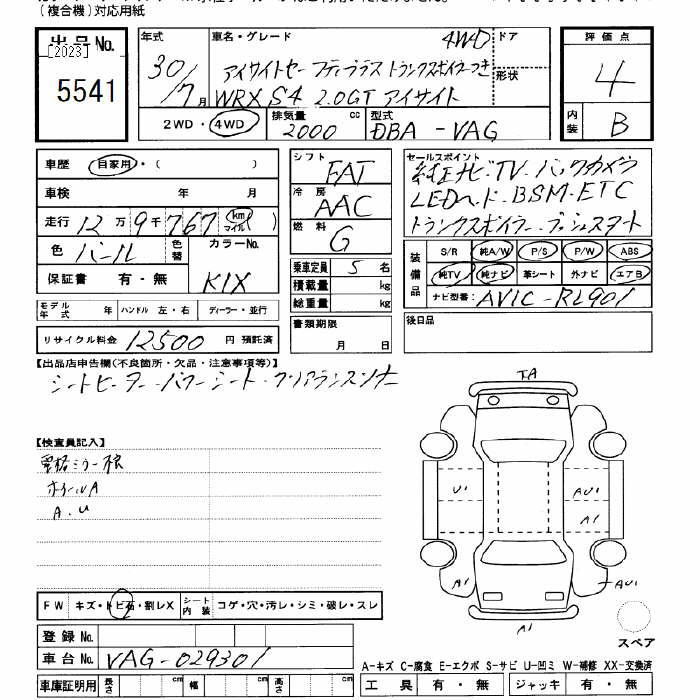 (複合機)対応用紙
出品No.
[2023]
5541
年式
30/7月
車名・グレード
4WD
ドア
形状
アイサイトセーフティプラス トランクスポイラーつき
WRX S4 2.0GT アイサイト
2WD・4WD
排気量
2000 cc
型式
DBA-VAG
評価点
4
内装
B
車歴 自家用・( )
車検 年 月
走行 12万9千767 km マイル
色 パール
色替
カラーNo.
K1X
保証書 有・無
モデル年式
ハンドル 左・右
ディーラー・並行
リサイクル料金 12500円 預託済
シフト
FAT
冷房
AAC
燃料
G
乗車定員 5名
積載量 kg
総重量 kg
書類期限
月 日
セールスポイント
純正ナビ・TV・バックカメラ
LEDヘッド・BSM・ETC
トランクスポイラー・プッシュスタート
装備品
S/R 純A/W P/S P/W ABS
純TV 純ナビ 革シート 外ナビ エアB
ナビ型番: AVIC-RL901
後日品
【出品店申告欄(不良箇所・欠品・注意事項等)】
シートヒーター・パワーシート・クリアランスソナー
【検査員記入】
電格ミラー
ホイールA
A・U
FW キズ・トビ石・割レX
シート内装 コゲ・穴・汚レ・シミ・破レ・スレ
登録No.
車台No. VAG-029301
車庫証明用 長さ cm 幅 cm 高さ cm
IA
U1
AU1
A1
A1
AU1
A1
スペア
A-キズ C-腐食 E-エクボ S-サビ U-凹ミ W-補修 XX-交換済
工具 有・無 ジャッキ 有・無